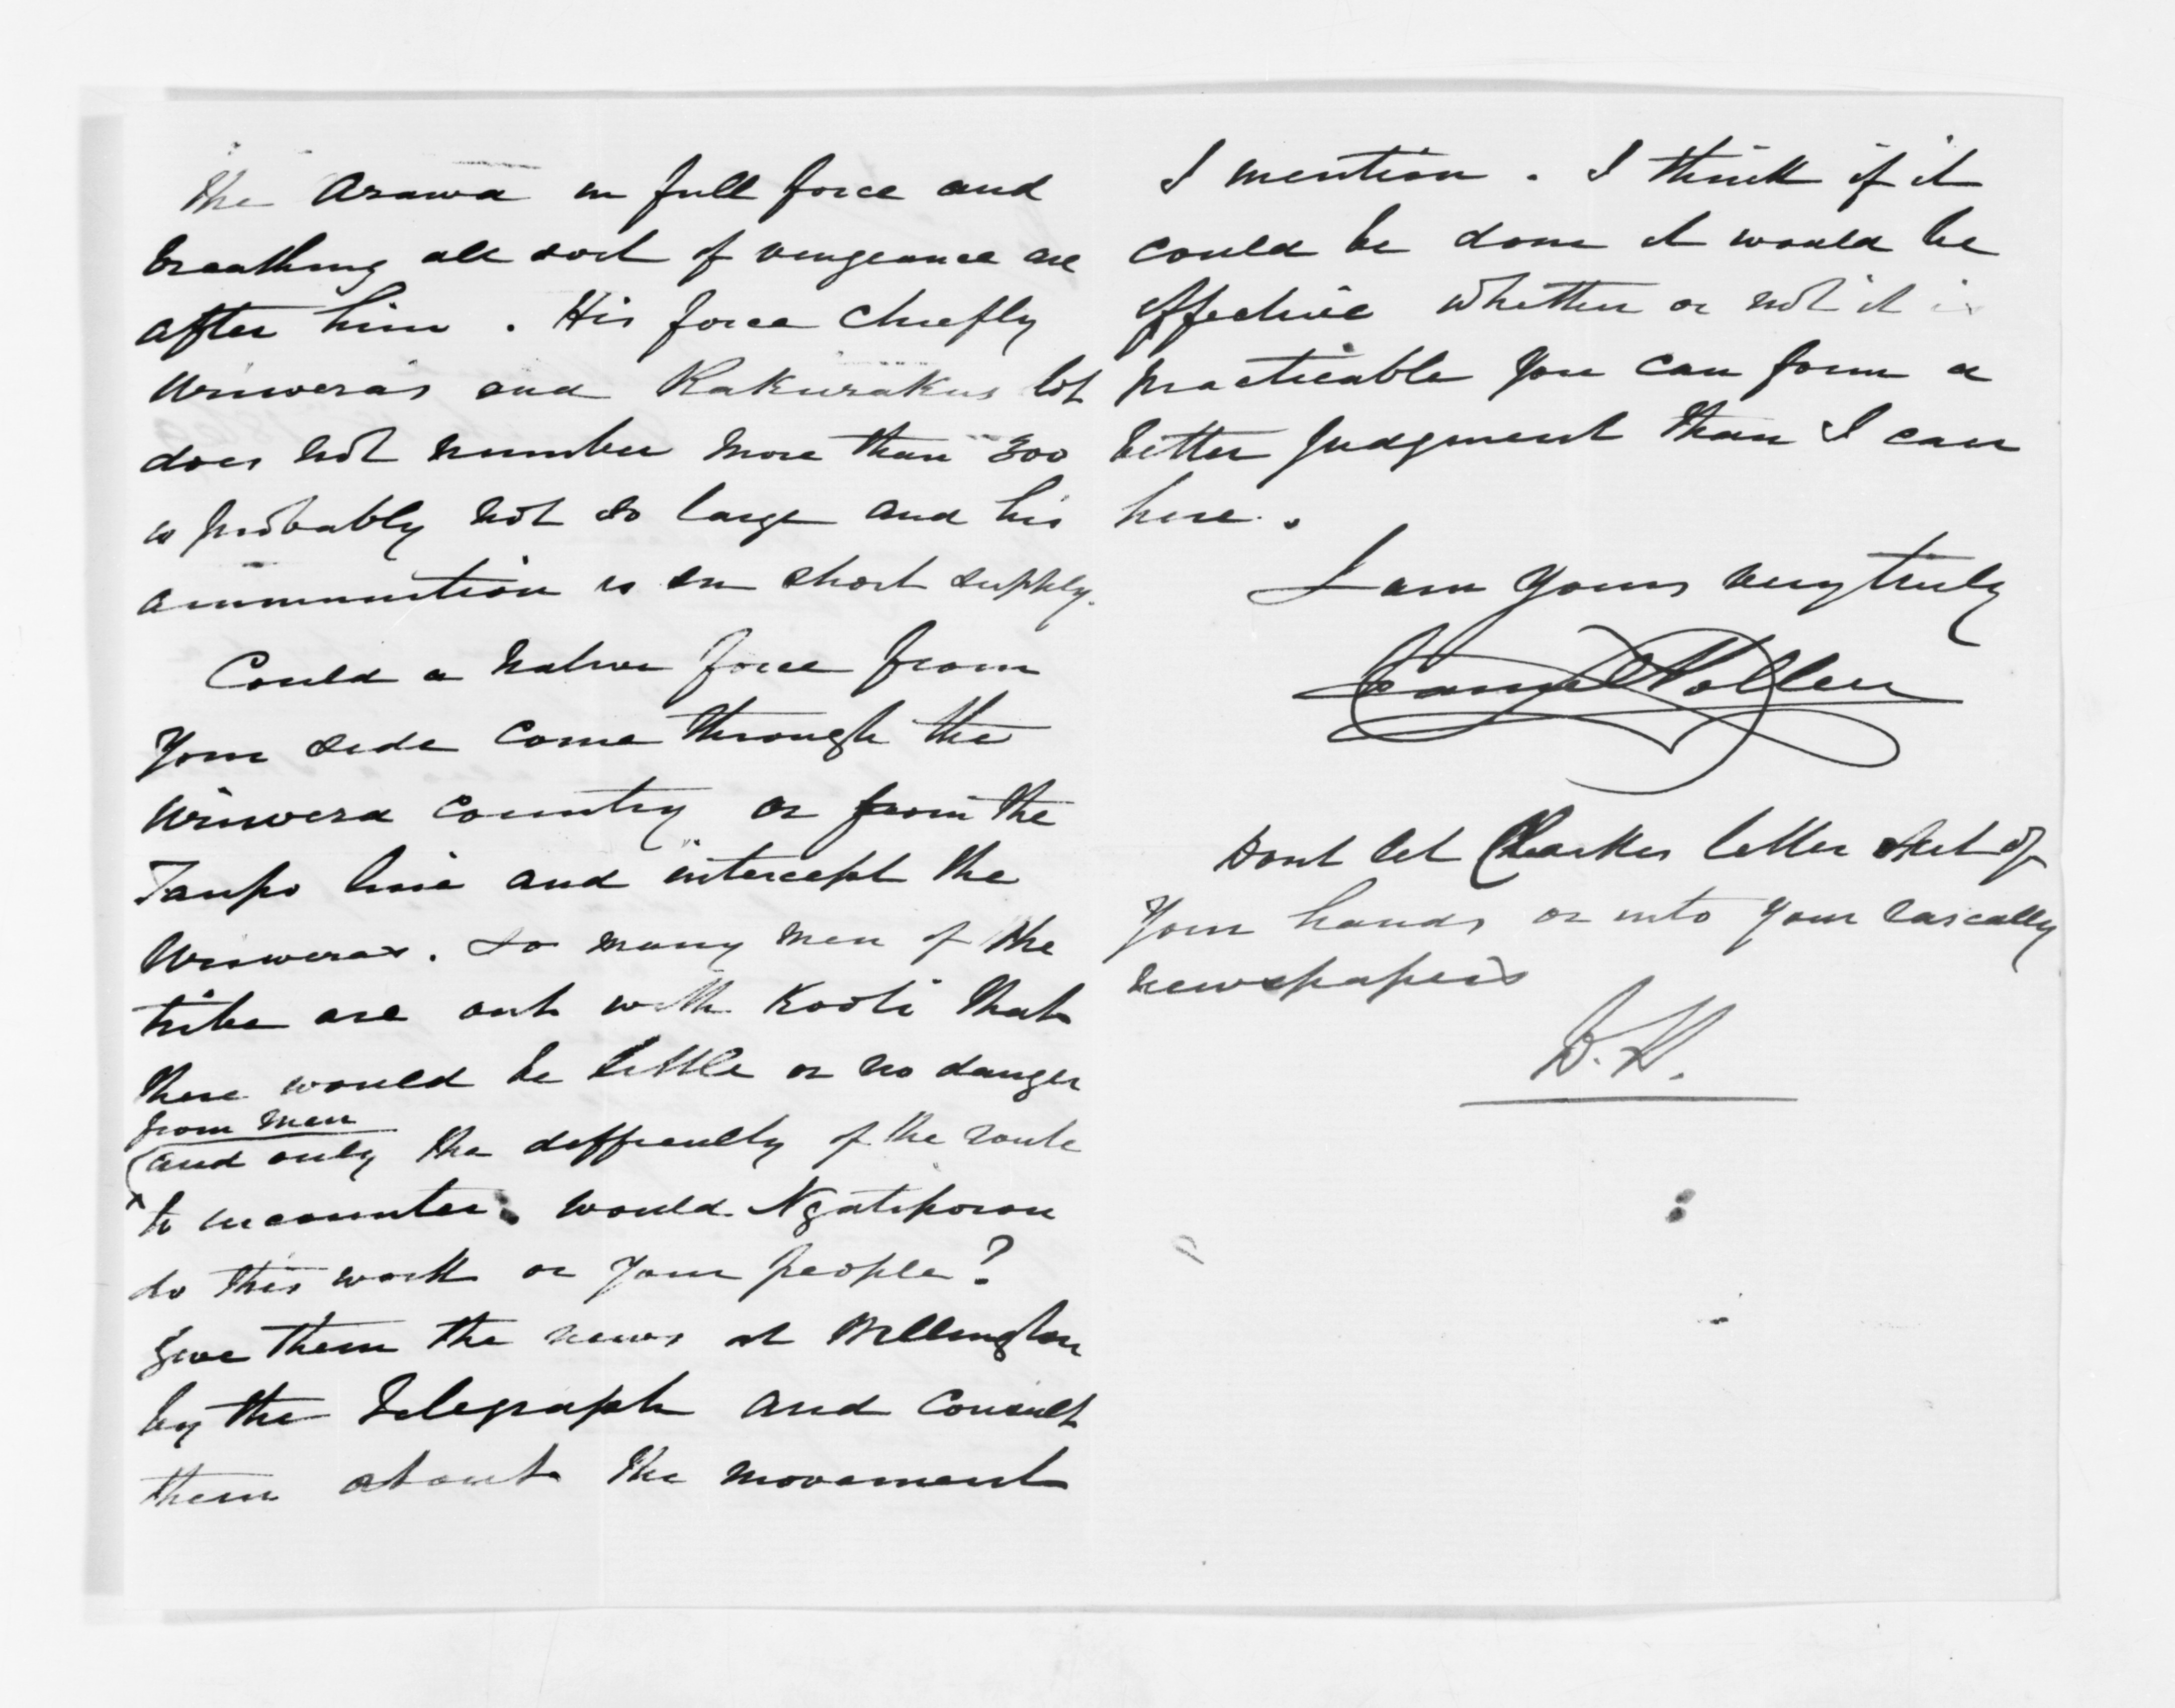 The Arawa in full force and
breathing all sort of vengeance are
after him. His force chiefly
Uriwera's and Rakurakus lot
does not number more than 300
is probably not so large and his
ammunition is in short supply.
Could a native force from
Your side come through the
Uriwera Country or from the
Taupo line and intercept the
Uriweras. So many men of the
tribe are out with Kooti that
there would be little or no danger
from men
and only the difficulty of the route
to encounter. would Ngatiporou
do this work or your people?
Give them the news at Wellington
by the Telegraph and Consult
them about the movement
I mention. I think if it
could be done it would be
effective whether or not it is
practicable you can form a
better judgment than I can
here.
I am yours very truly
Daniel Pollen
Dont let Clarkes letter out of
Your hands or into your rascally
newspapers
D.P.